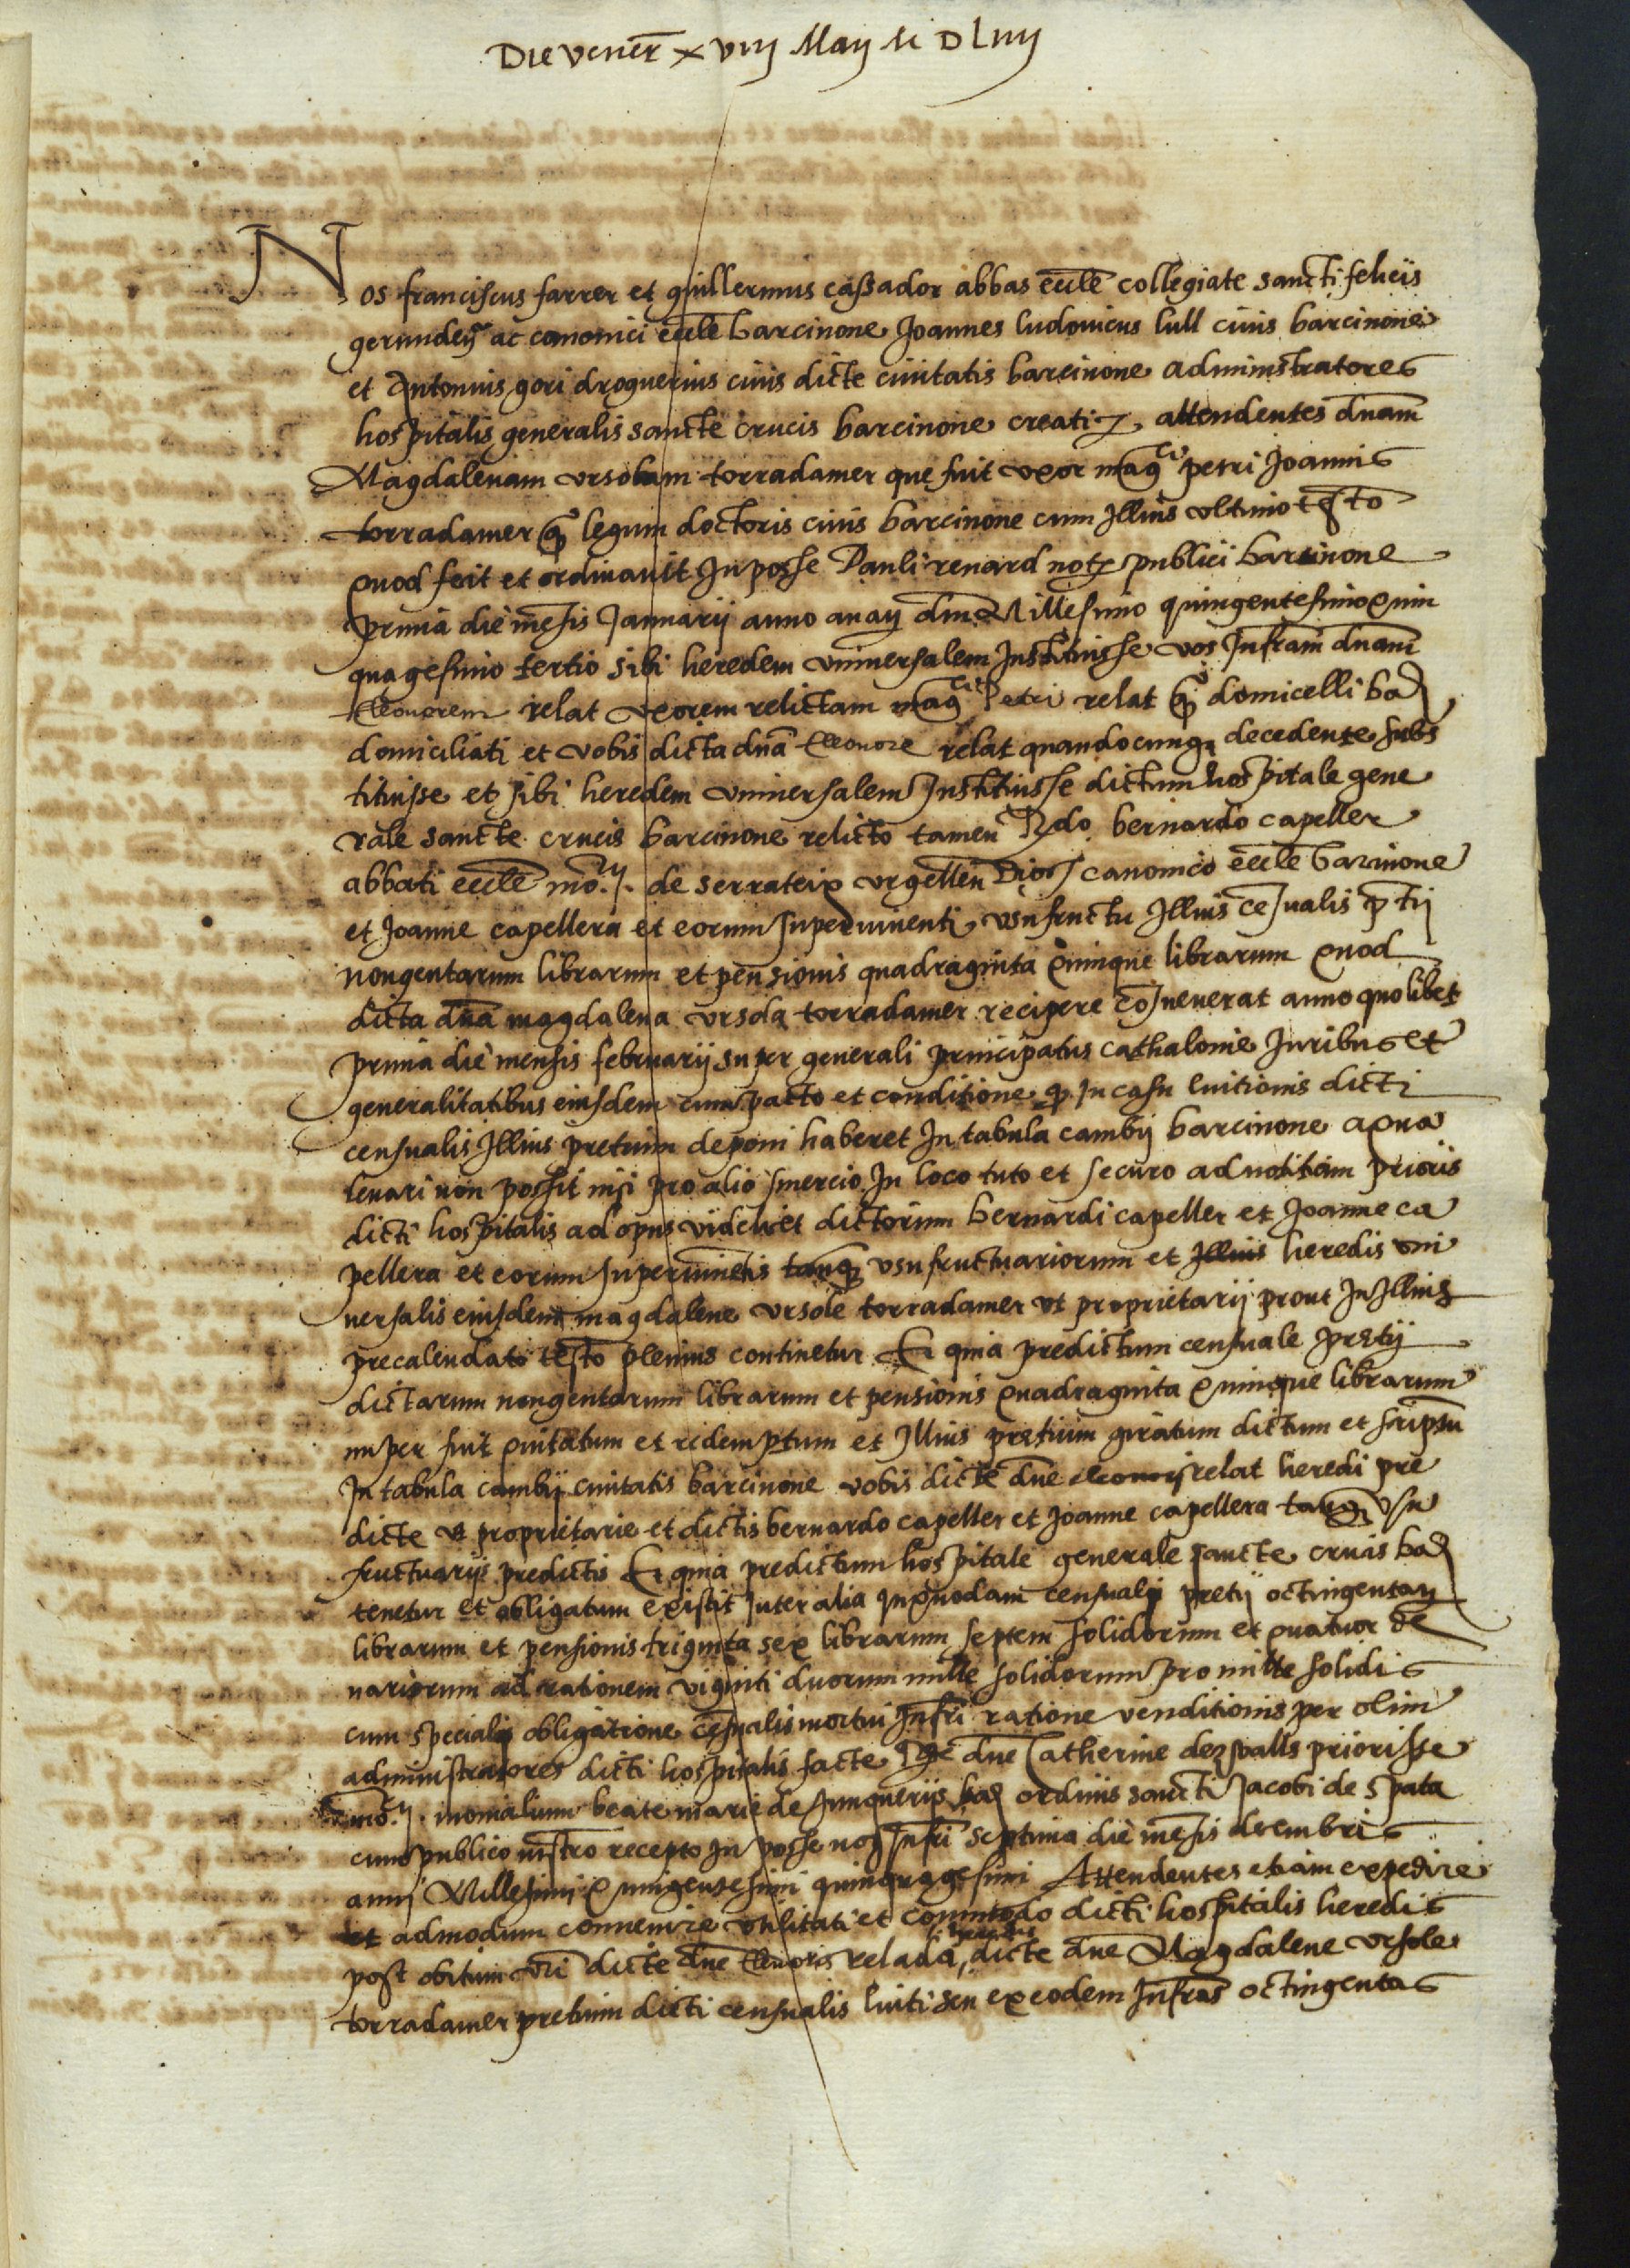 Die vener̄ xviij Maij M D Liiij
Nos franciscus farrer et guillermus cassador abbas eccl̄e collegiate sancti feliciis
gerunden̄ ac canonici eccl̄e barcinone Joannes ludovicus lull civis barcinone
et Antonius gori droguerius civis dicte civitatis barcinone administratores
hospitalis generalis sancte crucis barcinone creati attendentes dnam̄
Magdalenam ursolam torradamer que fuit uxor magci petri Joannis
torradamer q̄ legum doctoris civis barcinone cum Illius ultimo testo
quod fecit et ordinavit In posse Pauli renard notz publici barcinone
prima die men̄sis Januarii anno a natj dnī Millesimo quingentesimo quin
quagesimo tertio sibi heredem universalem Instituisse vos Infram̄ dnam̄
Eleonorem relat uxorem relictam magci Petri relat q̄ domicelli bar̄
domiciliati et vobis dicta dnā Eleonore relat quandocunq decedente subs
tituisse et sibi heredem universalem Instituisse dictum hospitale gene
rale sancte crucis barcinone relicto tamen Rdo bernardo capeller
abbati eccl̄e mo.rij de serrateix urgellen̄ dioc̄ canonico eccl̄e barcinone
et Joanne capellera et eorum superviventi usufructu Illius cēsualis p̄tij
nongentarum librarum et pensionis quadraginta quinque librarum quod
dicta dnā magdalena ursola torradamer recipere cōsueverat anno quolibet
prima die mensis februarii super generali principatus cathalonie Juribus et
generalitatibus eiusdem cum pacto et conditione q̄ In casu luitionis dicti
censualis Illius pretium deponi haberet In tabula cambij barcinone a qua
levari non possit nisi pro alio smercio In loco tuto et securo ad notitiam prioris
dicti hospitalis ad opus videlicet dictorum bernardi capeller et Joanne ca
pellera et eorum superviventis tanq̄ usufructuariorum et Illius heredis uni
versalis eiusdem magdalene ursole torradamer ut proprietarij prout In Illius
precalendato testo plenius continetur Et quia predictum censuale pretij
dictarum nongentarum librarum et pensionis quadraginta quinque librarum
nuper fuit quitatum et redemptum et Illius pretium giratum dictum et scriptū
In tabula cambij civitatis barcinone vobis dicte dnē eleonorj relat heredi pre
dicte ut proprietarie et dictis bernardo capeller et Joanne capellera tanq̄ usu
fructuarijs predictis Et quia predictum hospitale generale sancte crucis bar̄
tenetur et obligatum existit Inter alia In quodam censuali pretij octingentarj
librarum et pensionis triginta sex librarum septem solidorum et quatuor de
nariorum ad rationem viginti duorum mille solidorum pro mille solidis
cum speciali obligatione cēsualis mortui Infrī ratione venditionis per olim
administratores dicti hospitalis facte Rde dnē Catherine dezvalls priorisse
mo.rij monialium beate marie de Junqueriis bar̄ ordinis sancti Jacobi de spata
cum publico instro recepto In posse notz Infrī septima die men̄sis decembris
anni Millesimi quingentesimi quinquagesimi Attendentes etiam expedire
et admodum convenire utilitati et commodo dicti hospitalis heredis
post obitum vrī dicte dnē Eleonoris relada, dicte dnē Magdalene ursole
torradamer pretium dicti censualis luiti seu ex eodem Infras̄ octingentas